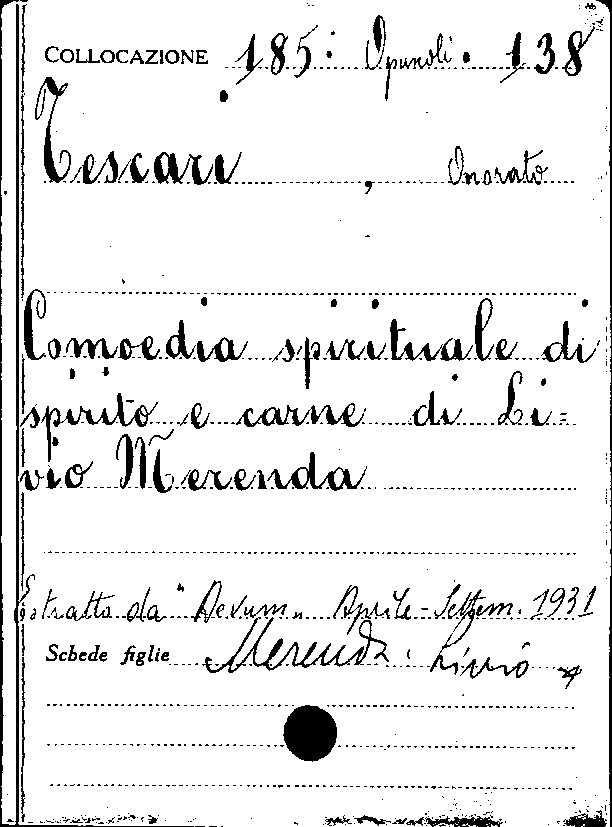 COLLOCAZIONE 185: Opuscoli. 138
Tescari, Onorato
Comoedia spirituale di
spirito e carne di Li=
vio Merenda
Estratto da "Aevum" Aprile-Settem. 1931
Schede figlie Merenda, Livio